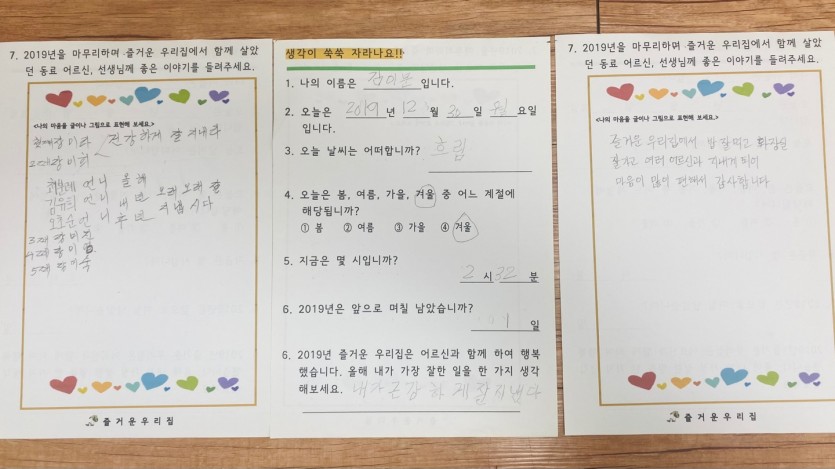 7. 2019년을 마무리하며 즐거운 우리집에서 함께 살았
던 동료 어르신, 선생님께 좋은 이야기를 들려주세요.
<나의 마음을 글이나 그림으로 표현해 보세요.>
첫째장미라 건강하게 잘 지내라
2째장미희
언니 올해
김유희 언니 내년 오래오래 잘
언니 후년 지냅시다
3째 장미
4째 장미
5째 장미숙
즐거운우리집
생각이 쑥쑥 자라나요!!
1. 나의 이름은 입니다.
2. 오늘은 2019 년 12 월 30 일 월 요일
입니다.
3. 오늘 날씨는 어떠합니까? 흐림
4. 오늘은 봄, 여름, 가을, 겨울 중 어느 계절에
해당됩니까?
① 봄 ② 여름 ③ 가을 ④ 겨울
5. 지금은 몇 시입니까?
2 시 32 분
6. 2019년은 앞으로 며칠 남았습니까?
1 일
6. 2019년 즐거운 우리집은 어르신과 함께 하여 행복
했습니다. 올해 내가 가장 잘한 일을 한 가지 생각
해보세요. 내가 곤강하게 잘지냈다
7. 2019년을 마무리하며 즐거운 우리집에서 함께 살았
던 동료 어르신, 선생님께 좋은 이야기를 들려주세요.
<나의 마음을 글이나 그림으로 표현해 보세요.>
즐거운 우리집에서 밥 잘먹고 화장실
잘가고 여러 어르신과 지내게 되어
마음이 많이 편해서 감사합니다
즐거운우리집